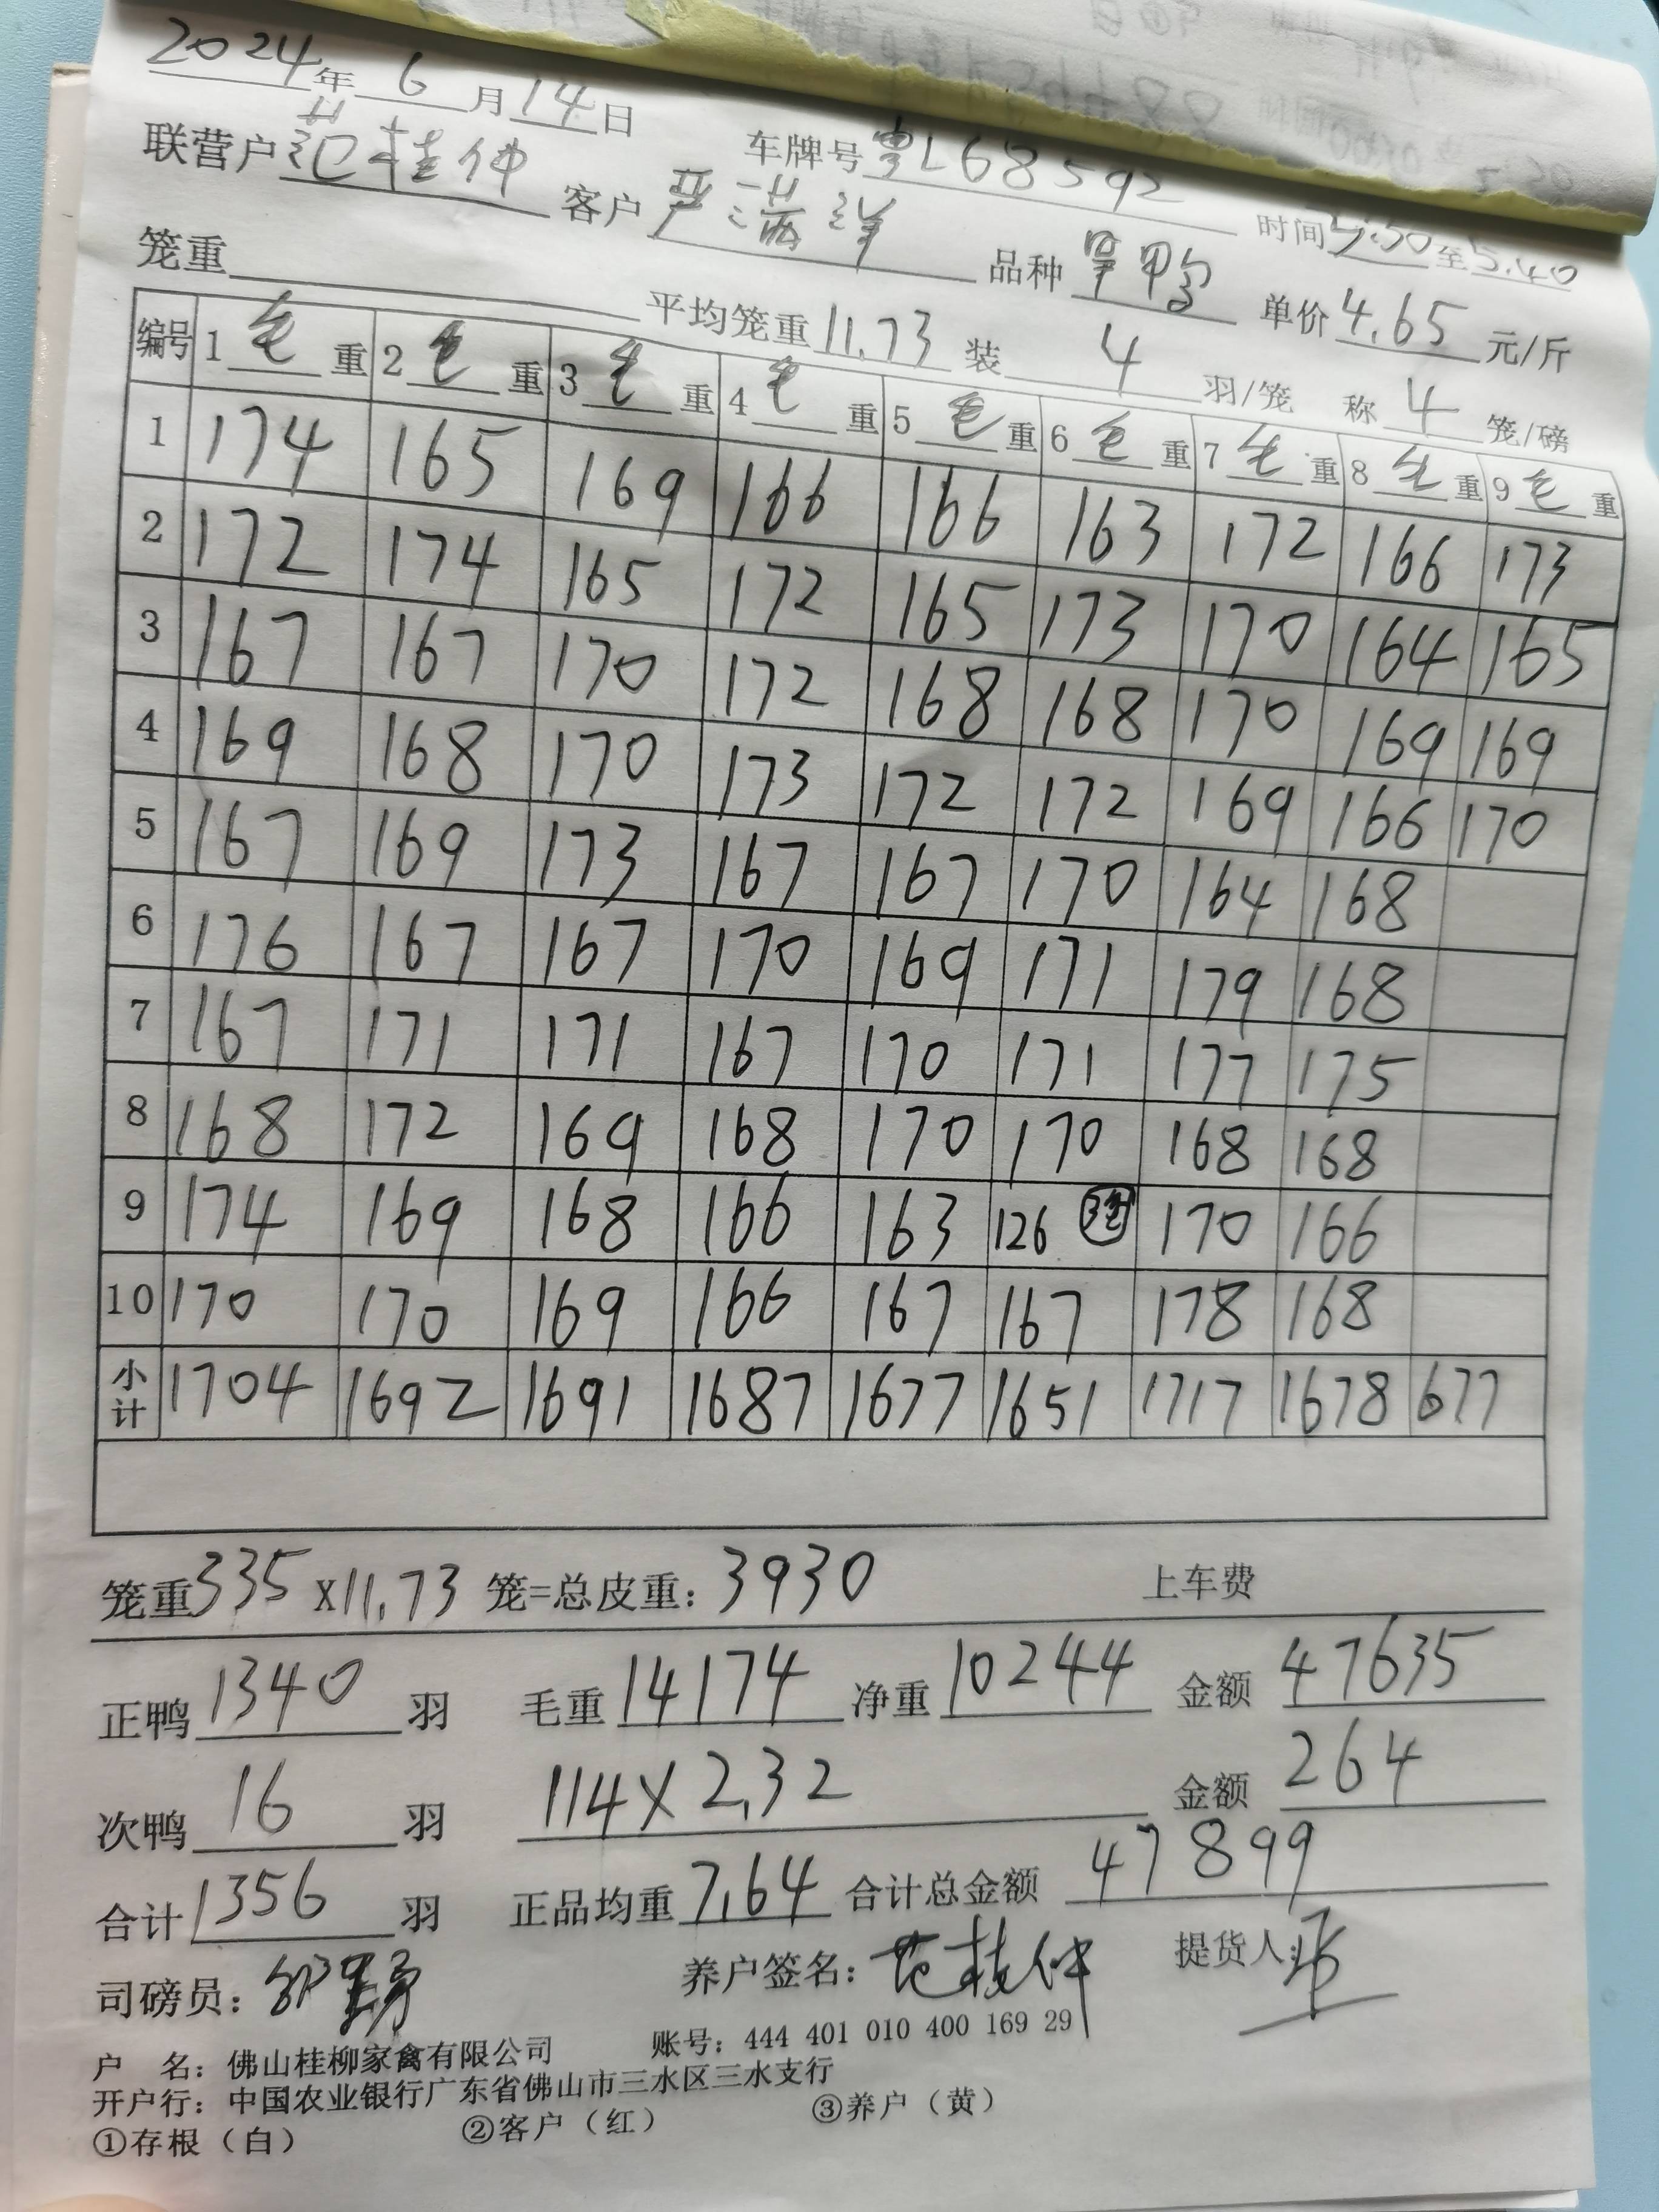 2024年6月14日
联营户 范桂仲 客户 严满洋 车牌号 粤L68592 时间 至5.40
笼重 平均笼重 11.73 装 4 羽/笼 称 4 笼/磅
品种 旱鸭 单价 4.65 元/斤
编号 1毛重 2毛重 3毛重 4毛重 5毛重 6毛重 7毛重 8毛重 9毛重
1 174 165 169 166 166 163 172 166 173
2 172 174 165 172 165 173 170 164 165
3 167 167 170 172 168 168 170 169 169
4 169 168 170 173 172 172 169 166 170
5 167 169 173 167 167 170 164 168
6 176 167 167 170 169 171 179 168
7 167 171 171 167 170 171 177 175
8 168 172 169 168 170 170 168 168
9 174 169 168 166 163 126 3笼 170 166
10 170 170 169 166 167 167 178 168
小计 1704 1692 1691 1687 1677 1651 1717 1678 677
笼重335 X11.73 笼=总皮重：3930 上车费
正鸭1340羽 毛重14174 净重10244 金额 47635
次鸭16羽 114X2.32 金额 264
合计1356羽 正品均重7.64 合计总金额 47899
司磅员： 养户签名：范桂仲 提货人：
户 名：佛山桂柳家禽有限公司 账号：444 401 010 400 169 29
开户行：中国农业银行广东省佛山市三水区三水支行
①存根（白） ②客户（红） ③养户（黄）